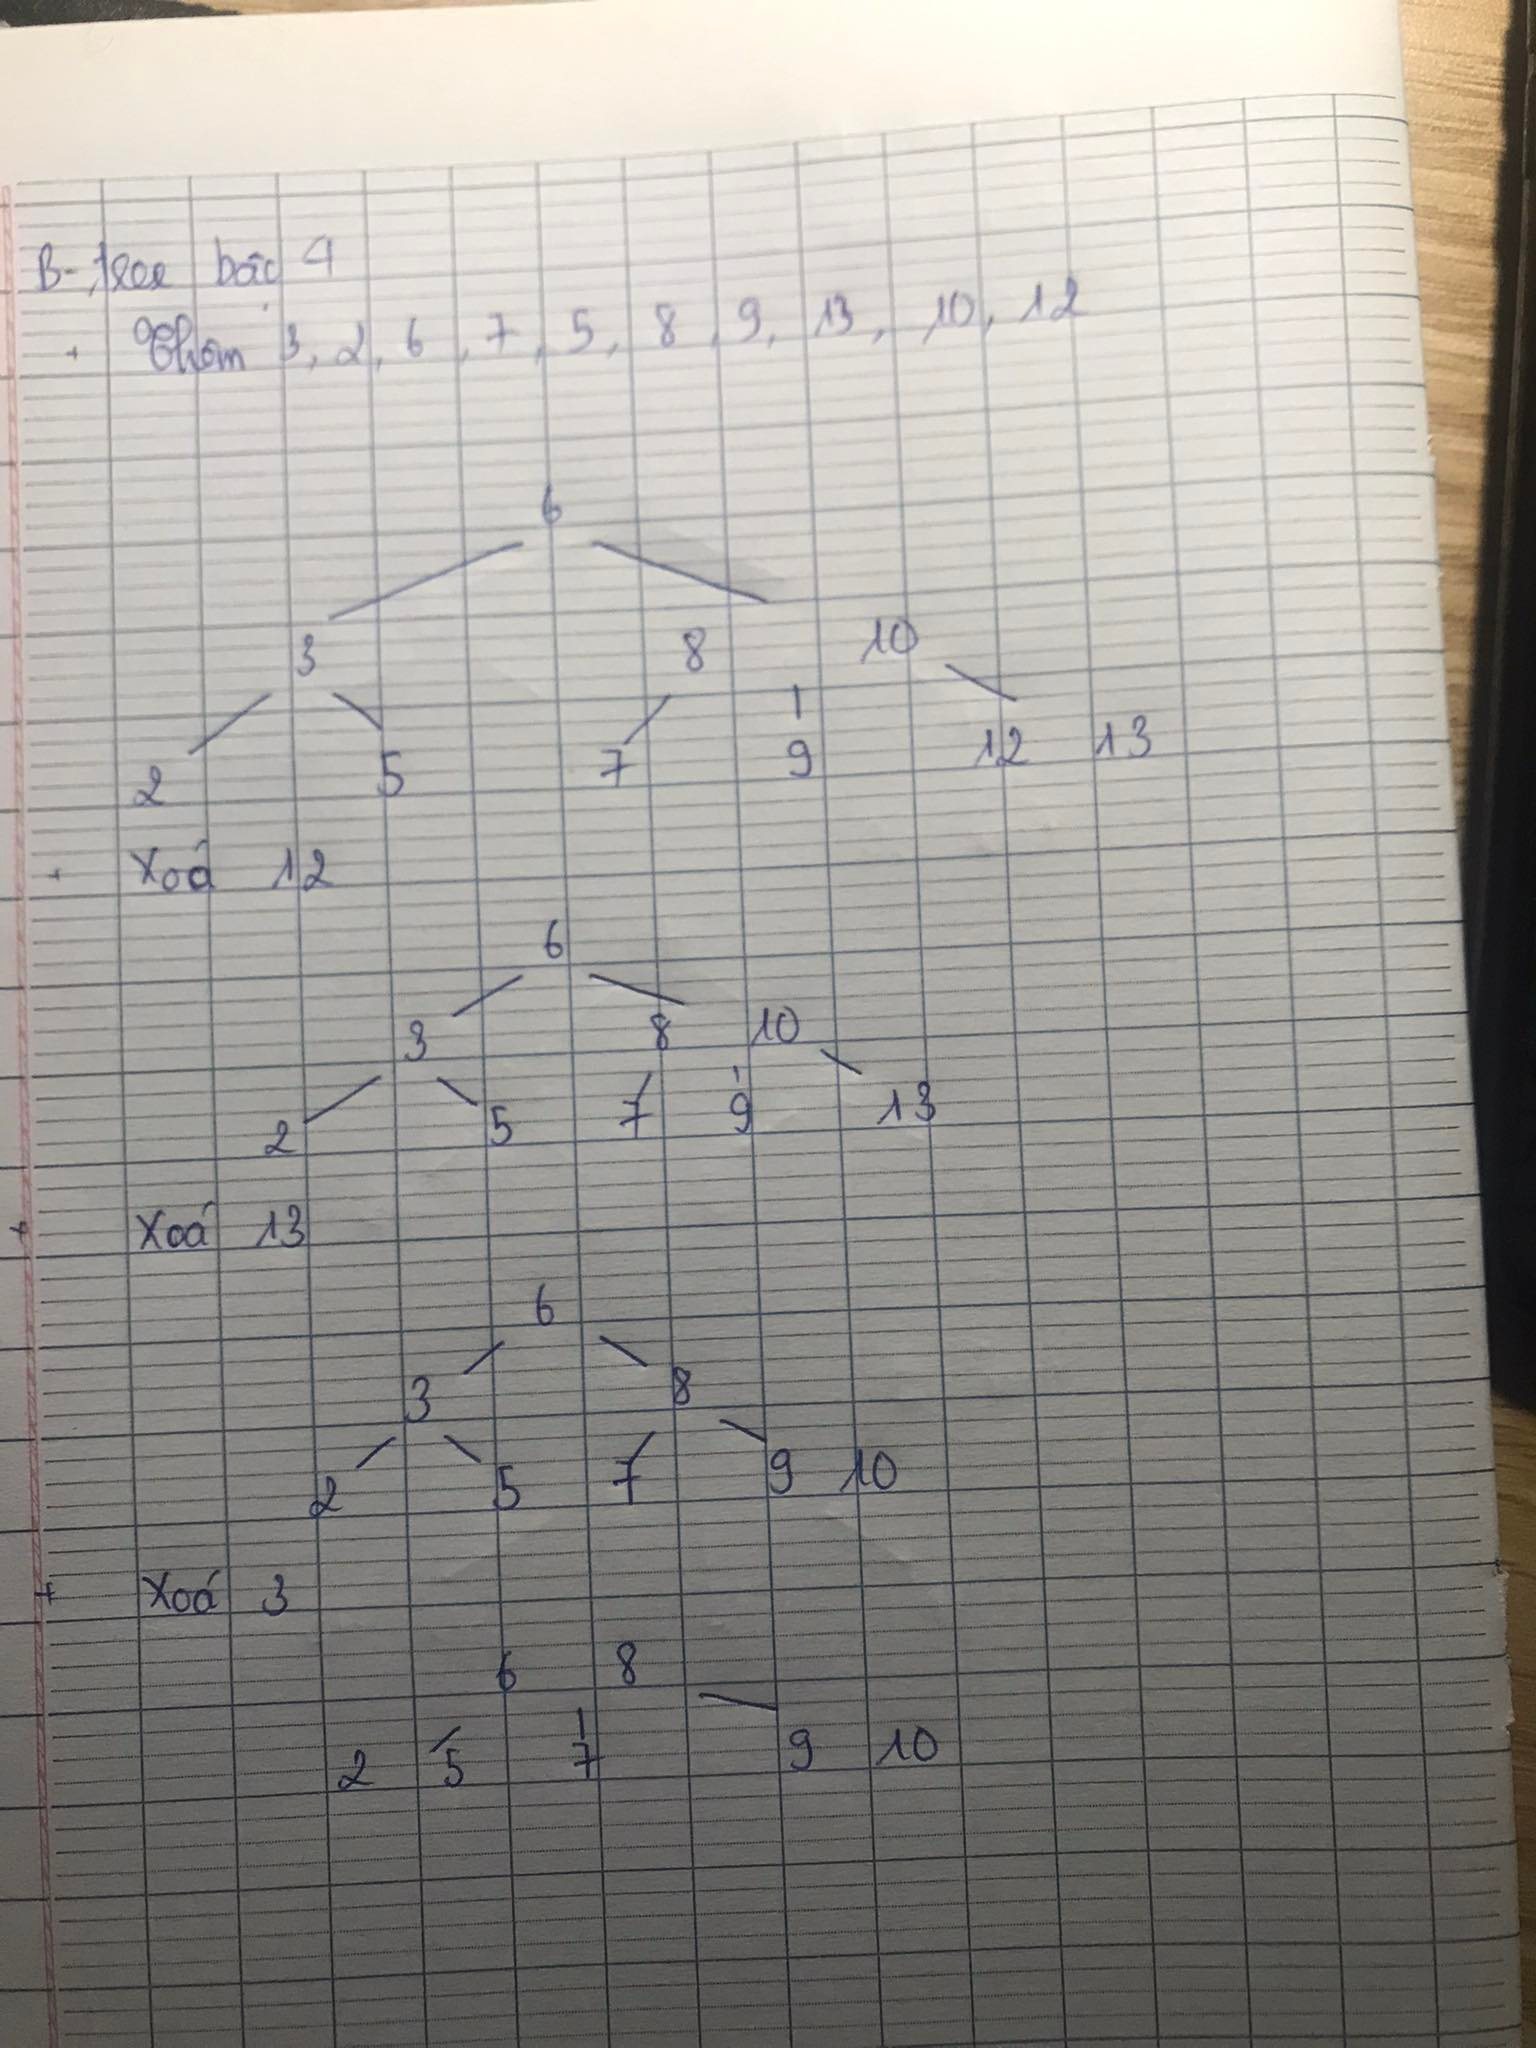 B-tree bậc 4
+ Thêm 3, 2, 6, 7, 5, 8, 9, 13, 10, 12
6
3 8 10
2 5 7 9 12 13
+ Xoá 12
6
3 8 10
2 5 7 9 13
+ Xoá 13
6
3 8
2 5 7 9 10
+ Xoá 3
6 8
2 5 7 9 10